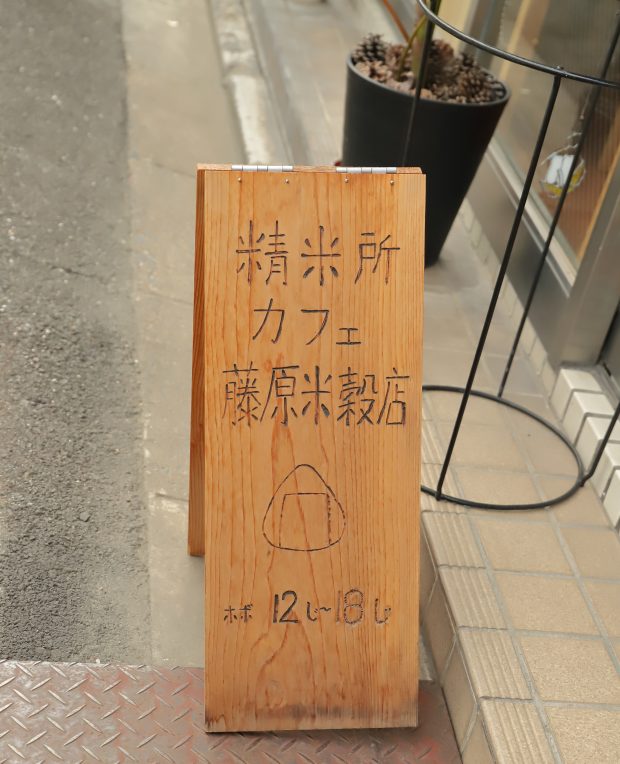 精米所
カフェ
藤原米穀店
ホボ 12じ~18じ